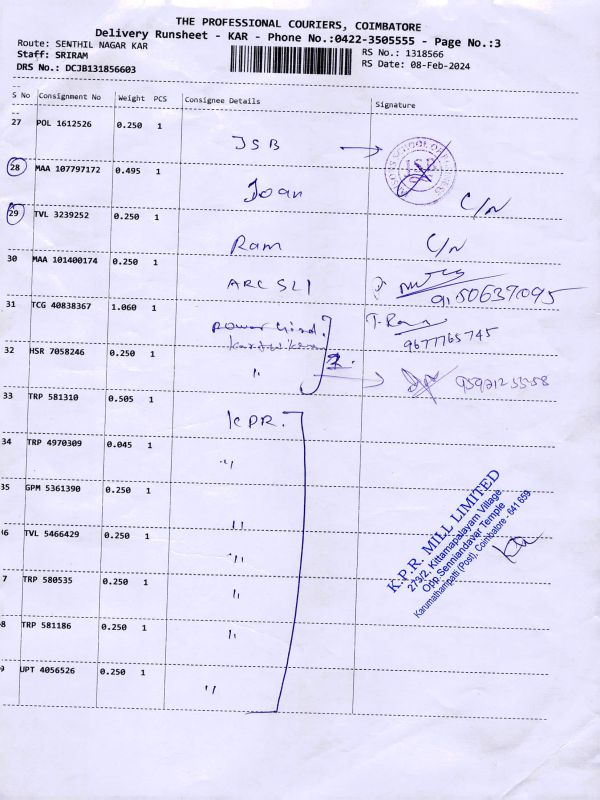 THE PROFESSIONAL COURIERS, COIMBATORE
Delivery Runsheet - KAR - Phone No.:0422-3505555 - Page No.:3
Route: SENTHIL NAGAR KAR
RS No.: 1318566
Staff: SRIRAM
RS Date: 08-Feb-2024
DRS No.: DCJB131856603
S No Consignment No Weight PCS Consignee Details Signature
27 POL 1612526 0.250 1
JSB
28 MAA 107797172 0.495 1
Joan C/N
29 TVL 3239252 0.250 1
Ram C/N
30 MAA 101400174 0.250 1
ARC SLI
9150637095
31 TCG 40838367 1.060 1
power
T. Ram
9677765745
32 HSR 7058246 0.250 1
"
33 TRP 581310 0.505 1
KPR.
34 TRP 4970309 0.045 1
"
35 GPM 5361390 0.250 1
"
K.P.R. MILL LIMITED
273/2, Kittampalayam Village
Opp.Senniandavar Temple
Karumathampatti (Post), Coimbatore - 641 659
36 TVL 5466429 0.250 1
"
7 TRP 580535 0.250 1
"
8 TRP 581186 0.250 1
"
9 UPT 4056526 0.250 1
"